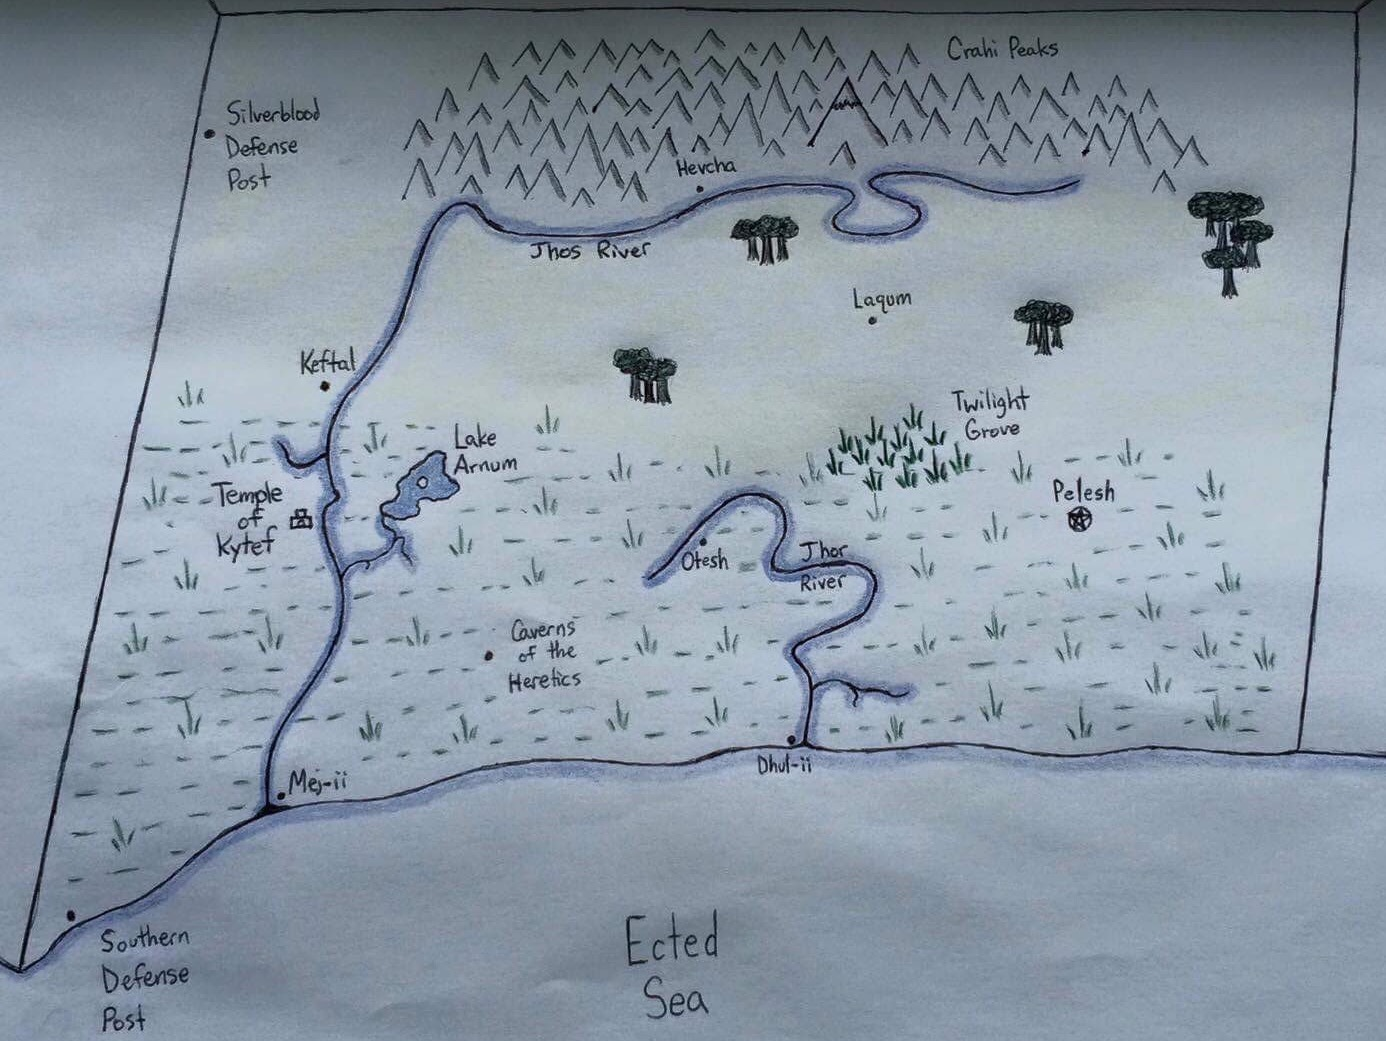 Crahi Peaks
Silverblood
Defense
Post
Hevcha
Jhos River
Laqum
Keftal
Twilight
Grove
Lake
Arnum
Temple
of
Kytef
Pelesh
Otesh
Jhor
River
Caverns
of the
Heretics
Mej-ii
Dhul-ii
Southern
Defense
Post
Ected
Sea